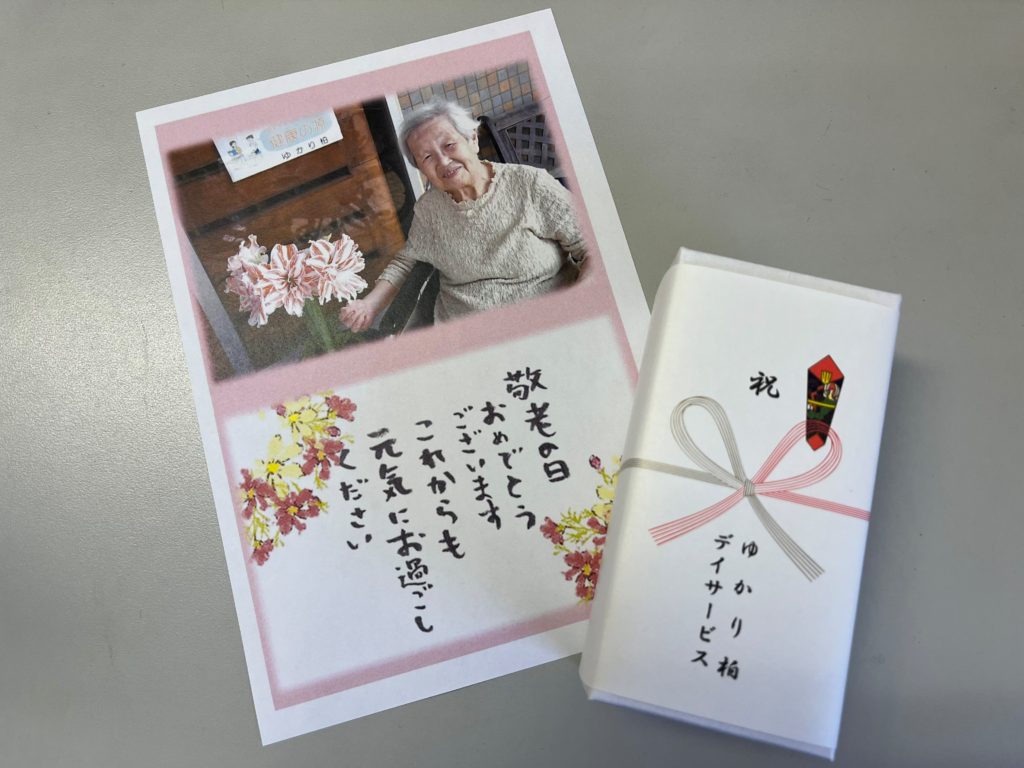 健康の源
ゆかり柏
敬老の日
おめでとう
ございます
これからも
元気にお過ごし
ください
祝
ゆかり柏
デイサービス